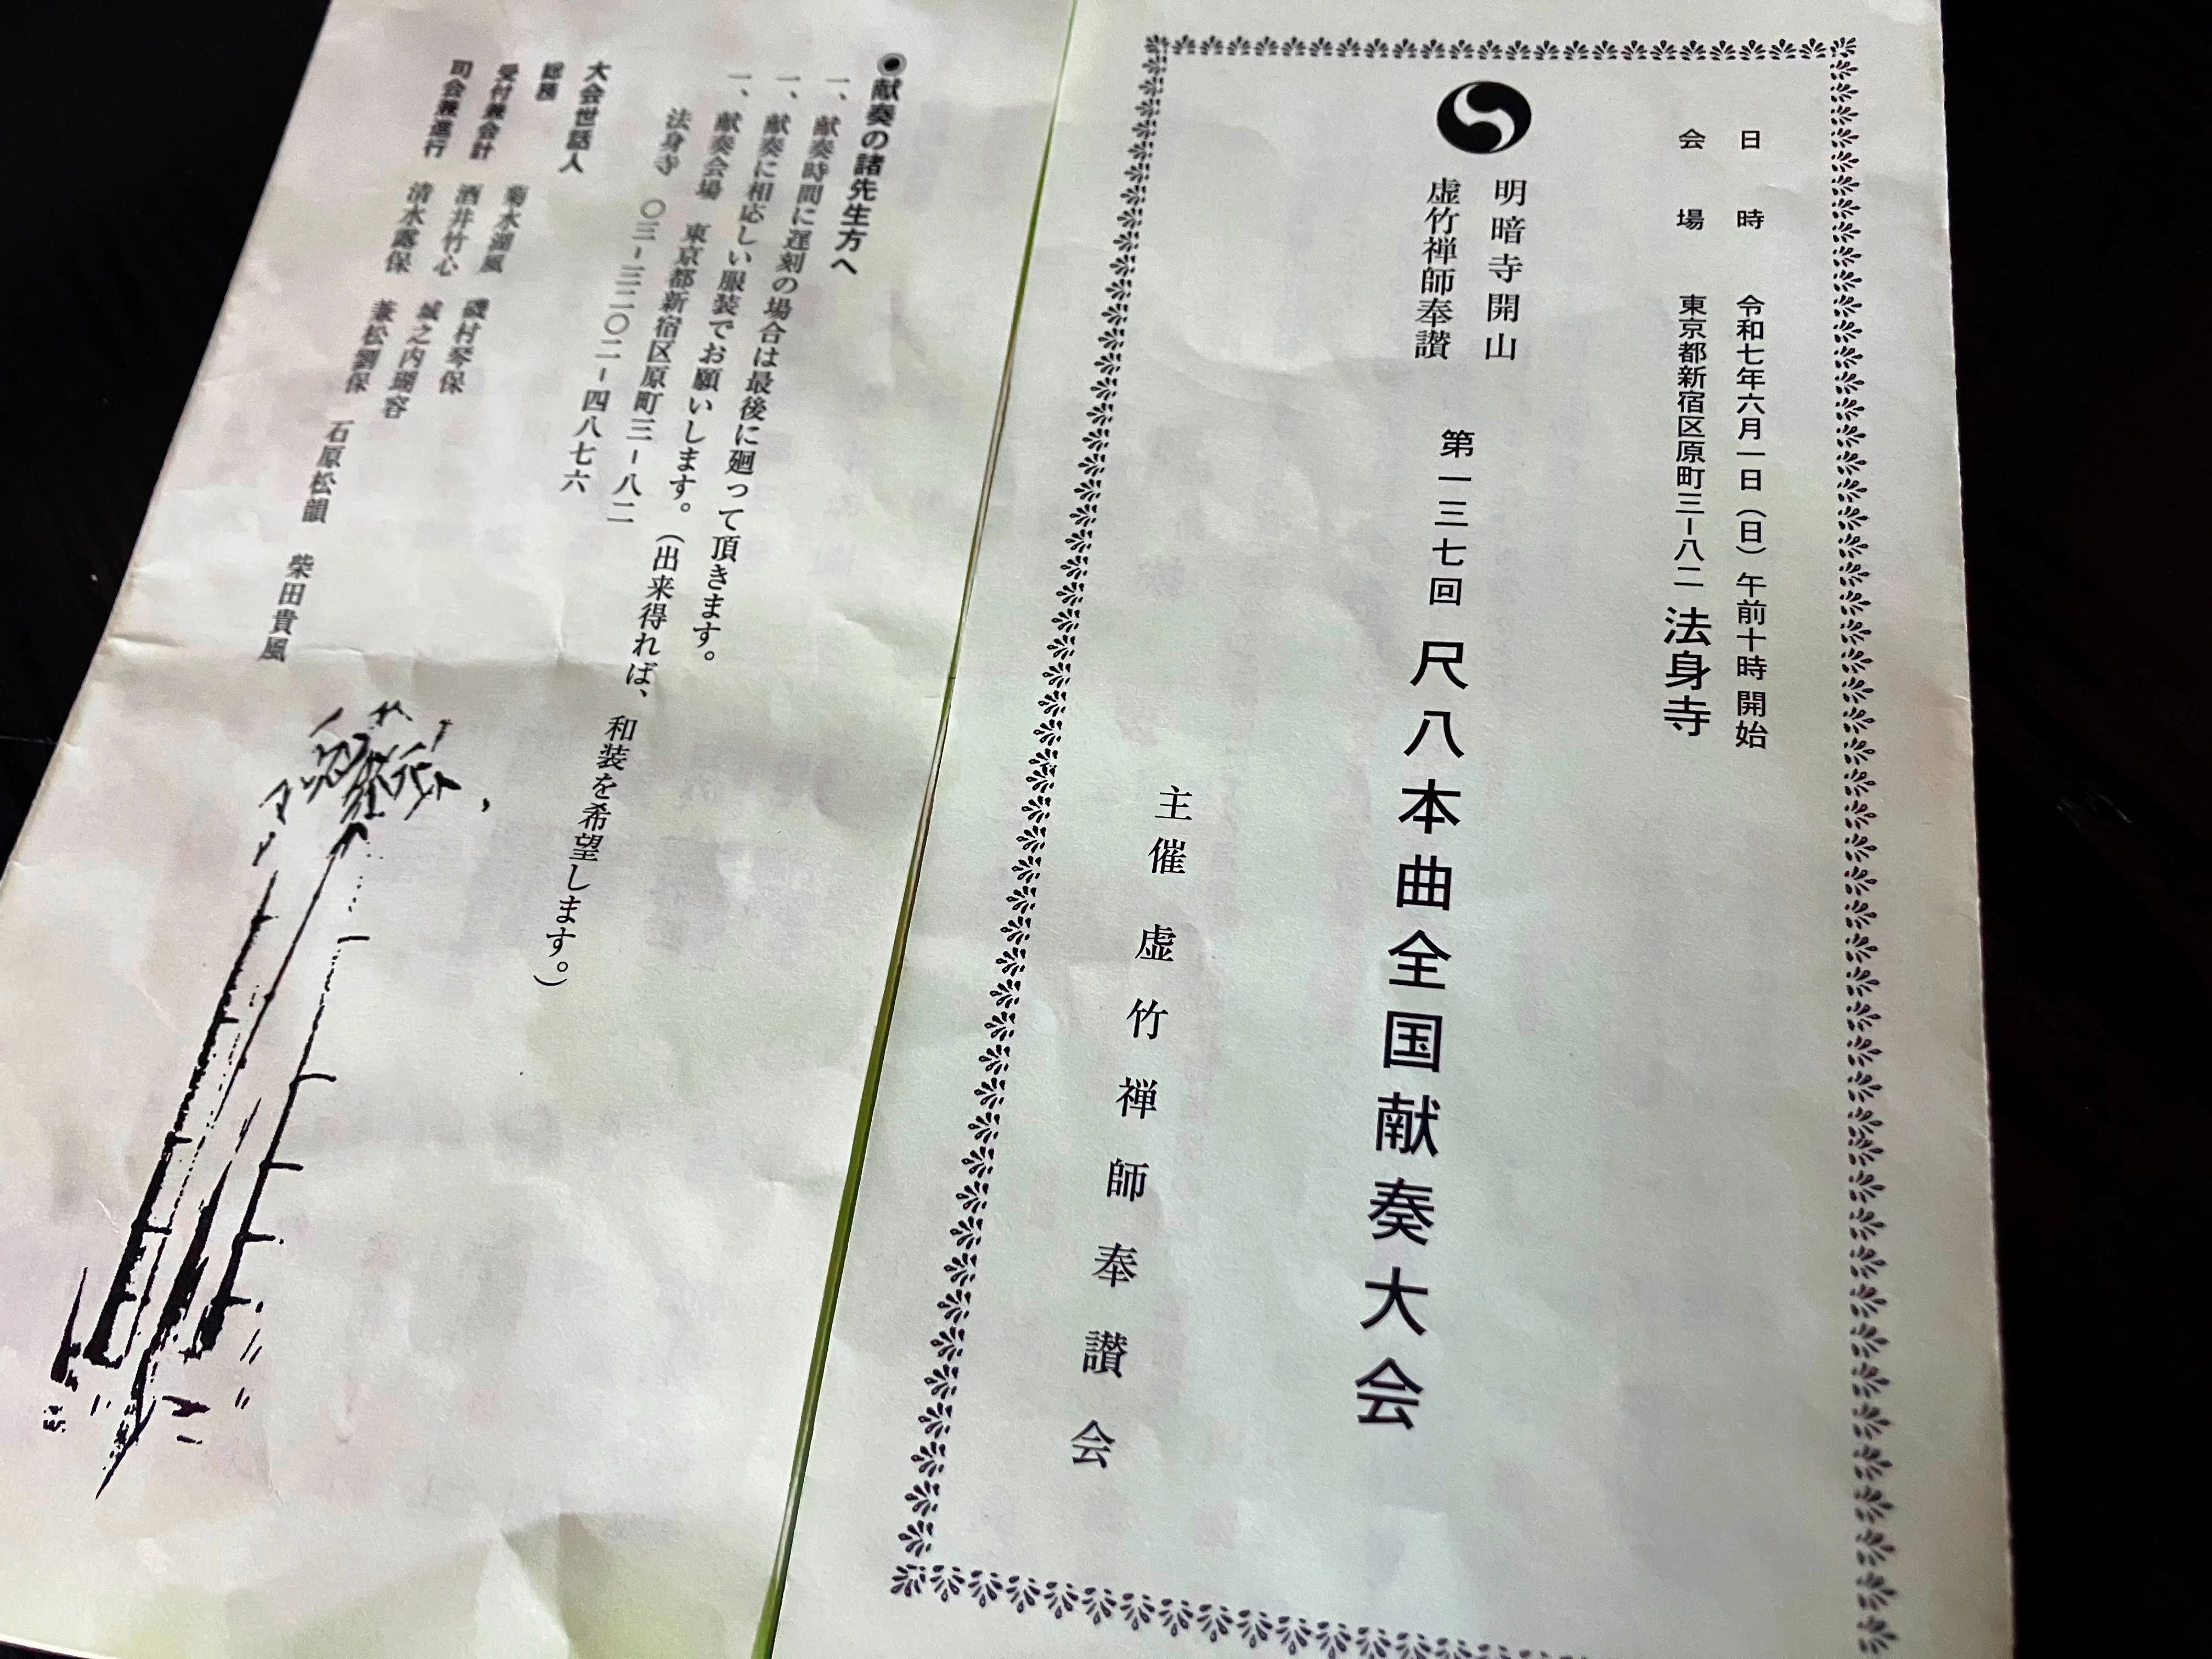 日時 令和七年六月一日（日）午前十時開始
会場 東京都新宿区原町三－八二 法身寺
明暗寺開山
虚竹禅師奉讃
第一三七回 尺八本曲全国献奏大会
主催 虚竹禅師奉讃会
◉献奏の諸先生方へ
一、献奏時間に遅刻の場合は最後に廻って頂きます。
一、献奏に相応しい服装でお願いします。（出来得れば、和装を希望します。）
一、献奏会場 東京都新宿区原町三－八二
法身寺 〇三－三二〇二－四八七六
大会世話人
総務 菊水湖風 磯村琴保
受付兼会計 酒井竹心 城之内瑚容
司会兼進行 清水露保 兼松劉保 石原松韻 柴田貴風